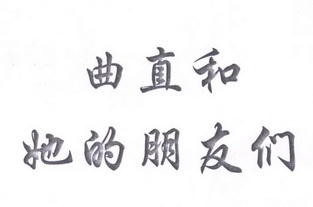 曲直和
她的朋友们